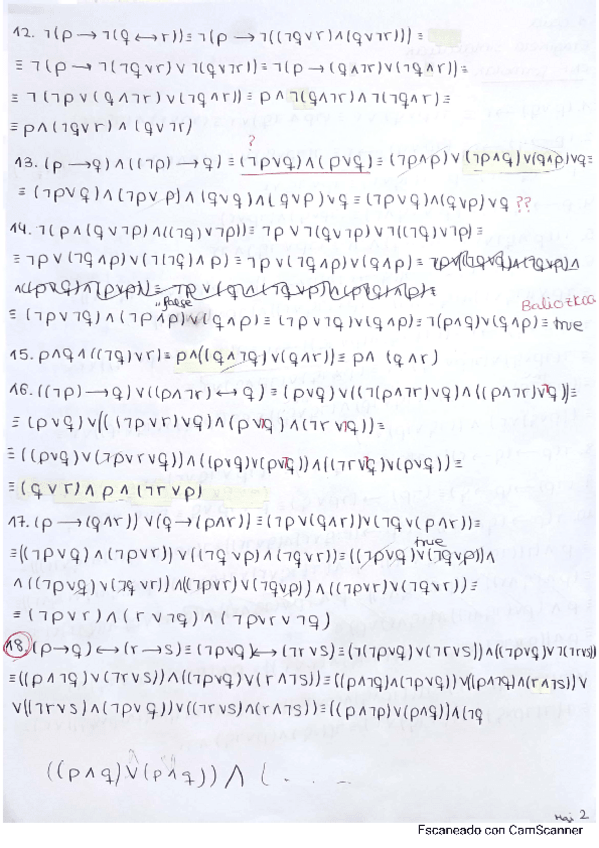 12. ¬(p → ¬(q ↔ r)) ≡ ¬(p → ¬((¬q∨r)∧(q∨¬r))) ≡
≡ ¬(p → ¬(¬q∨r) ∨ ¬(q∨¬r)) ≡ ¬(p → (q∧¬r)∨(¬q∧r)) ≡
≡ ¬(¬p∨(q∧¬r)∨(¬q∧r)) ≡ p∧¬(q∧¬r)∧¬(¬q∧r) ≡
≡ p∧(¬q∨r)∧(q∨¬r)
?
13. (p → q)∧((¬p) → q) ≡ (¬p∨q)∧(p∨q) ≡ (¬p∧p)∨(¬p∧q)∨(q∧p)∨q ≡
≡ (¬p∨q)∧(¬p∨p)∧(q∨q)∧(q∨p)∨q ≡ (¬p∨q)∧(q∨p)∨q ??
14. ¬(p∧(q∨¬p)∧((¬q)∨¬p)) ≡ ¬p∨¬(q∨¬p)∨¬((¬q)∨¬p) ≡
≡ ¬p∨(¬q∧p)∨(¬(¬q)∧p) ≡ ¬p∨(¬q∧p)∨(q∧p) ≡
"false
Baliozkoa
≡ (¬p∨¬q)∧(¬p∧p)∨(q∧p) ≡ (¬p∨¬q)∨(q∧p) ≡ ¬(p∧q)∨(q∧p) ≡ true
15. p∧q∧((¬q)∨r) ≡ p∧((q∧¬q)∨(q∧r)) ≡ p∧(q∧r)
16. ((¬p) → q)∨((p∧¬r) ↔ q) ≡ (p∨q)∧((¬(p∧¬r)∨q)∧((p∧¬r)∨¬q)) ≡
≡ (p∨q)∨((¬p∨r)∨q)∧(p∨¬q)∧(¬r∨¬q)) ≡
≡ ((p∨q)∨(¬p∨r∨q))∧((p∨q)∨(p∨¬q))∧((¬r∨¬q)∨(p∨q)) ≡
≡ (q∨r)∧p∧(¬r∨p)
17. (p → (q∧r))∨(q → (p∧r)) ≡ (¬p∨(q∧r))∨(¬q∨(p∧r)) ≡
true
≡ ((¬p∨q)∧(¬p∨r))∨((¬q∨p)∧(¬q∨r)) ≡ ((¬p∨q)∨(¬q∨p))∧
∧((¬p∨q)∨(¬q∨r))∧((¬p∨r)∨(¬q∨p))∧((¬p∨r)∨(¬q∨r)) ≡
≡ (¬p∨r)∧(r∨¬q)∧(¬p∨r∨¬q)
18. (p → q) ↔ (r → s) ≡ (¬p∨q) ↔ (¬r∨s) ≡ (¬(¬p∨q)∨(¬r∨s))∧((¬p∨q)∨¬(¬r∨s))
≡ ((p∧¬q)∨(¬r∨s))∧((¬p∨q)∨(r∧¬s)) ≡ ((p∧¬q)∧(¬p∨q))∨((p∧¬q)∧(r∧¬s))∨
∨((¬r∨s)∧(¬p∨q))∨((¬r∨s)∧(r∧¬s)) ≡ ((p∧¬p)∨(p∧q))∧(¬q
((p∧q)∨(p∧q))∧(. . . .
Hoji 2
Escaneado con CamScanner